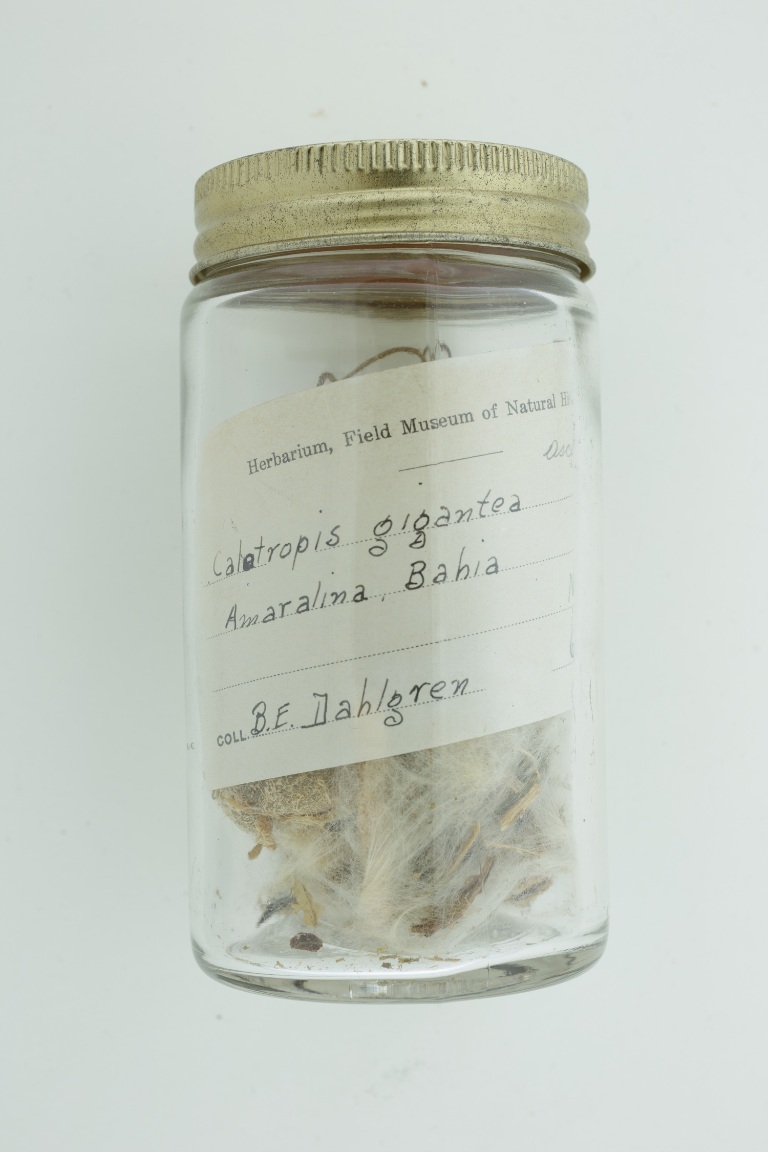 Herbarium, Field Museum of Natural
Calotropis gigantea
Amaralina, Bahia
COLL. B.E. Dahlgren